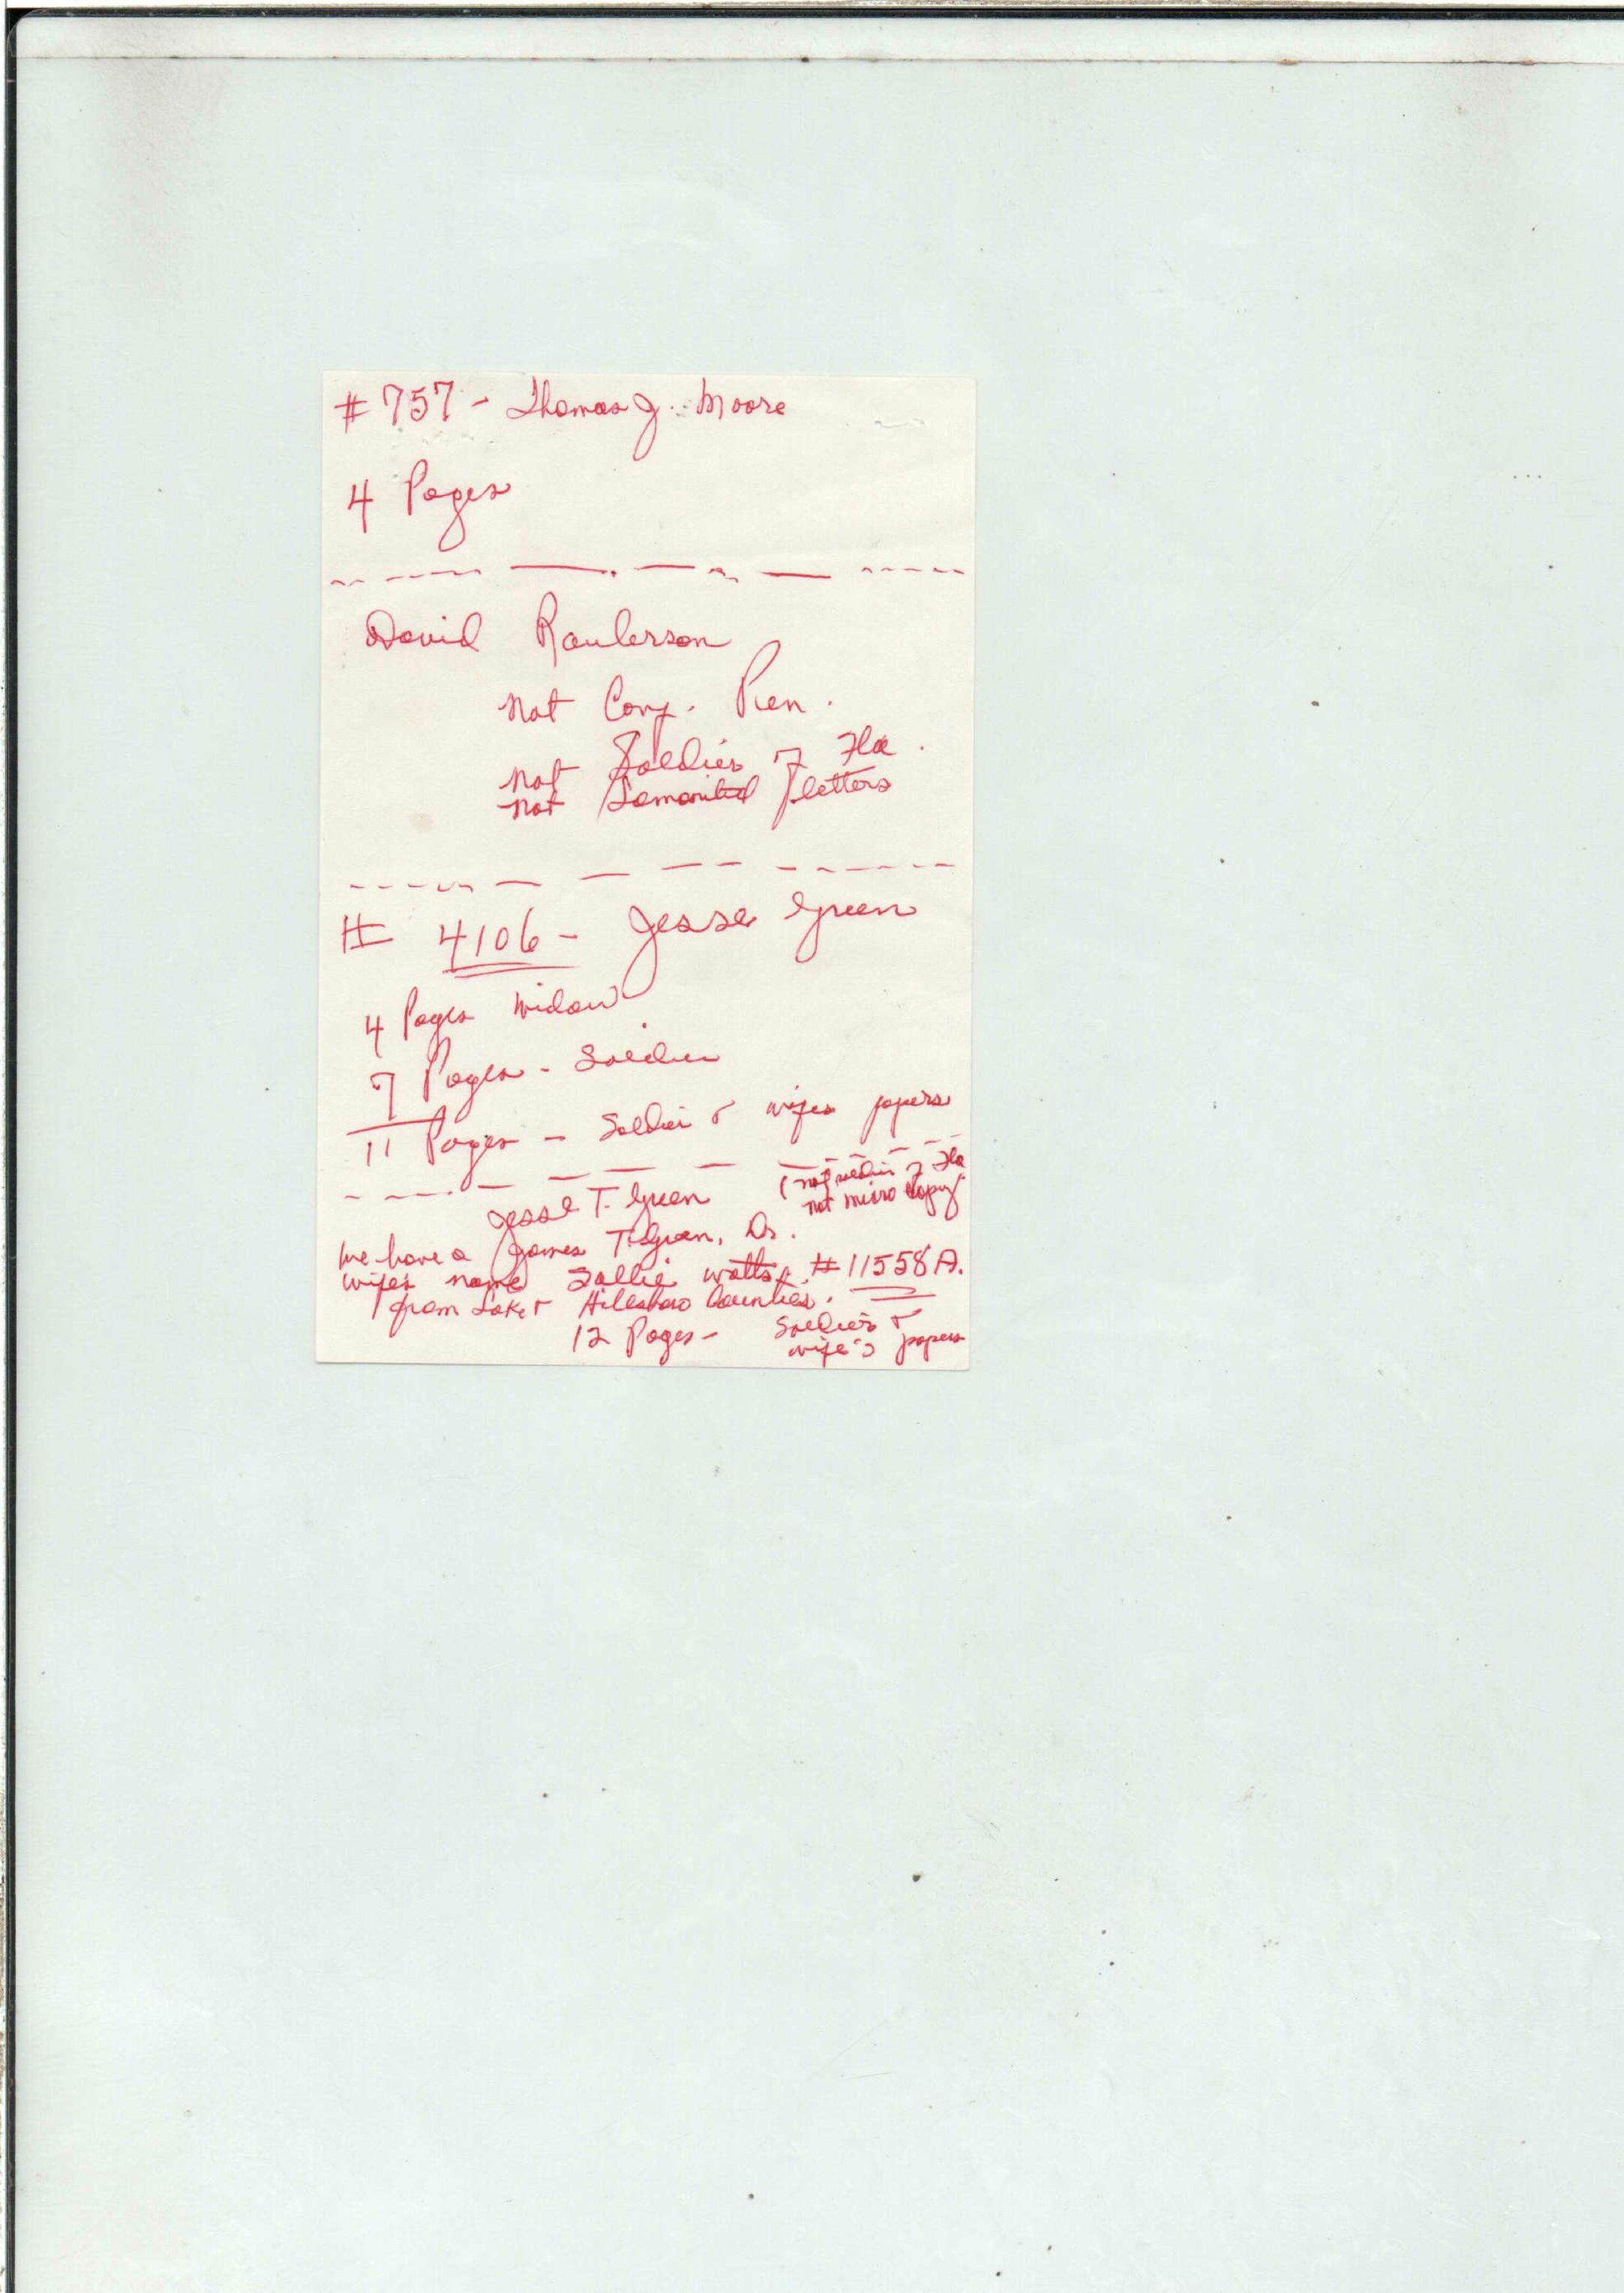 # 757 - Thomas J. Moore
4 Pages
David Raulerson
not Conf. Pen.
not Soldiers of Fla.
not letters
# 4106 - Jesse Green
4 Pages Widow
7 Pages - Soldier
11 Pages - Soldier & wifes papers
Jesse T. Green
(not soldier of Fla
not micro copy
We have a James T. Green, Dr.
wifes name Sallie Watts, # 11558 A.
from Lake & Hillsboro Counties.
12 Pages - Soldier's &
wife's papers